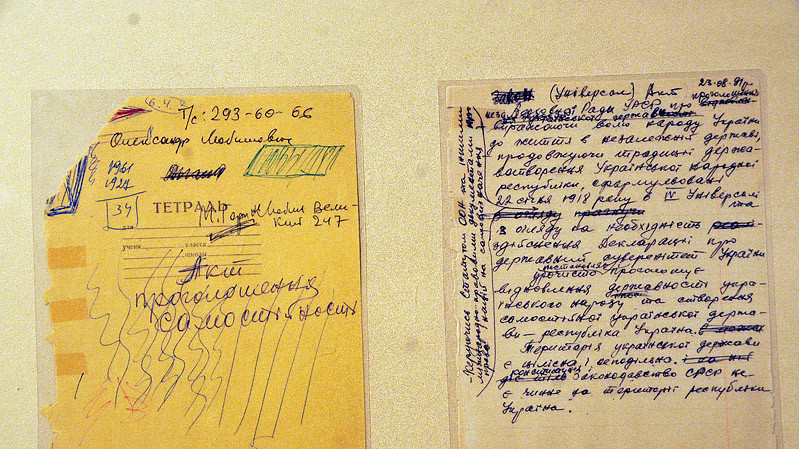 6.4.2
Т/с: 293-60-66
Олександр Любимович
1961
1927
34
ТЕТРАДЬ
Вели-
247
учени
класса
школы
Акт
проголошення
самостійності
23-08-91р.
закон (Універсал) Акт проголошення
Верховної Ради УРСР про
української держав
виражаючи волю народу України
до життя в незалежній державі,
продовжуючи традиції держа-
вотворення Української народної
республіки, сформульовані
22 січня 1918 року в IV Універсалі
та
З огляду на необхідність
здійснення Декларації про
державний суверенітет України
урочисто проголошує
відновлення державності укра-
їнського народу та створення
самостійної української держа-
ви – республіка Україна.
Територія української держави
є цілісна і неподільна.
конституція і
законодавство СРСР не
є чинне на території республіки
Україна.
-Керуючись Статутом ООН та іншими
міжнародно-правовими документами про
право націй на самовизначення